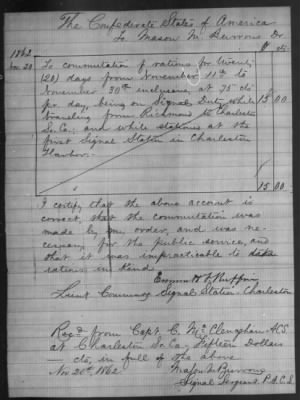 The Confederate States of America
To Mason M Burrows Dr
$ cts
1862
Nov. 20 To commutation of rations for twenty
(20) days from November 11th to
November 30th inclusive, at 75 cts
pr. day, being on Signal Duty while 15 00
traveling from Richmond to Charleston
So. Ca.; and while stationed at the
first Signal Station in Charleston
Harbor.
15 00
I certify that the above account is
correct, that the commutation was
made by my order, and was ne-
cessary for the public service, and
that it was impracticable to
rations in kind.
Lieut Commdg Signal Station, Charleston
Recd from Capt. C. McClenaghan ACS
at Charleston So Ca, Fifteen Dollars
— cts, in full of the above
Nov 20th 1862. Mason M Burrows
Signal Sergeant P.A.C.S.